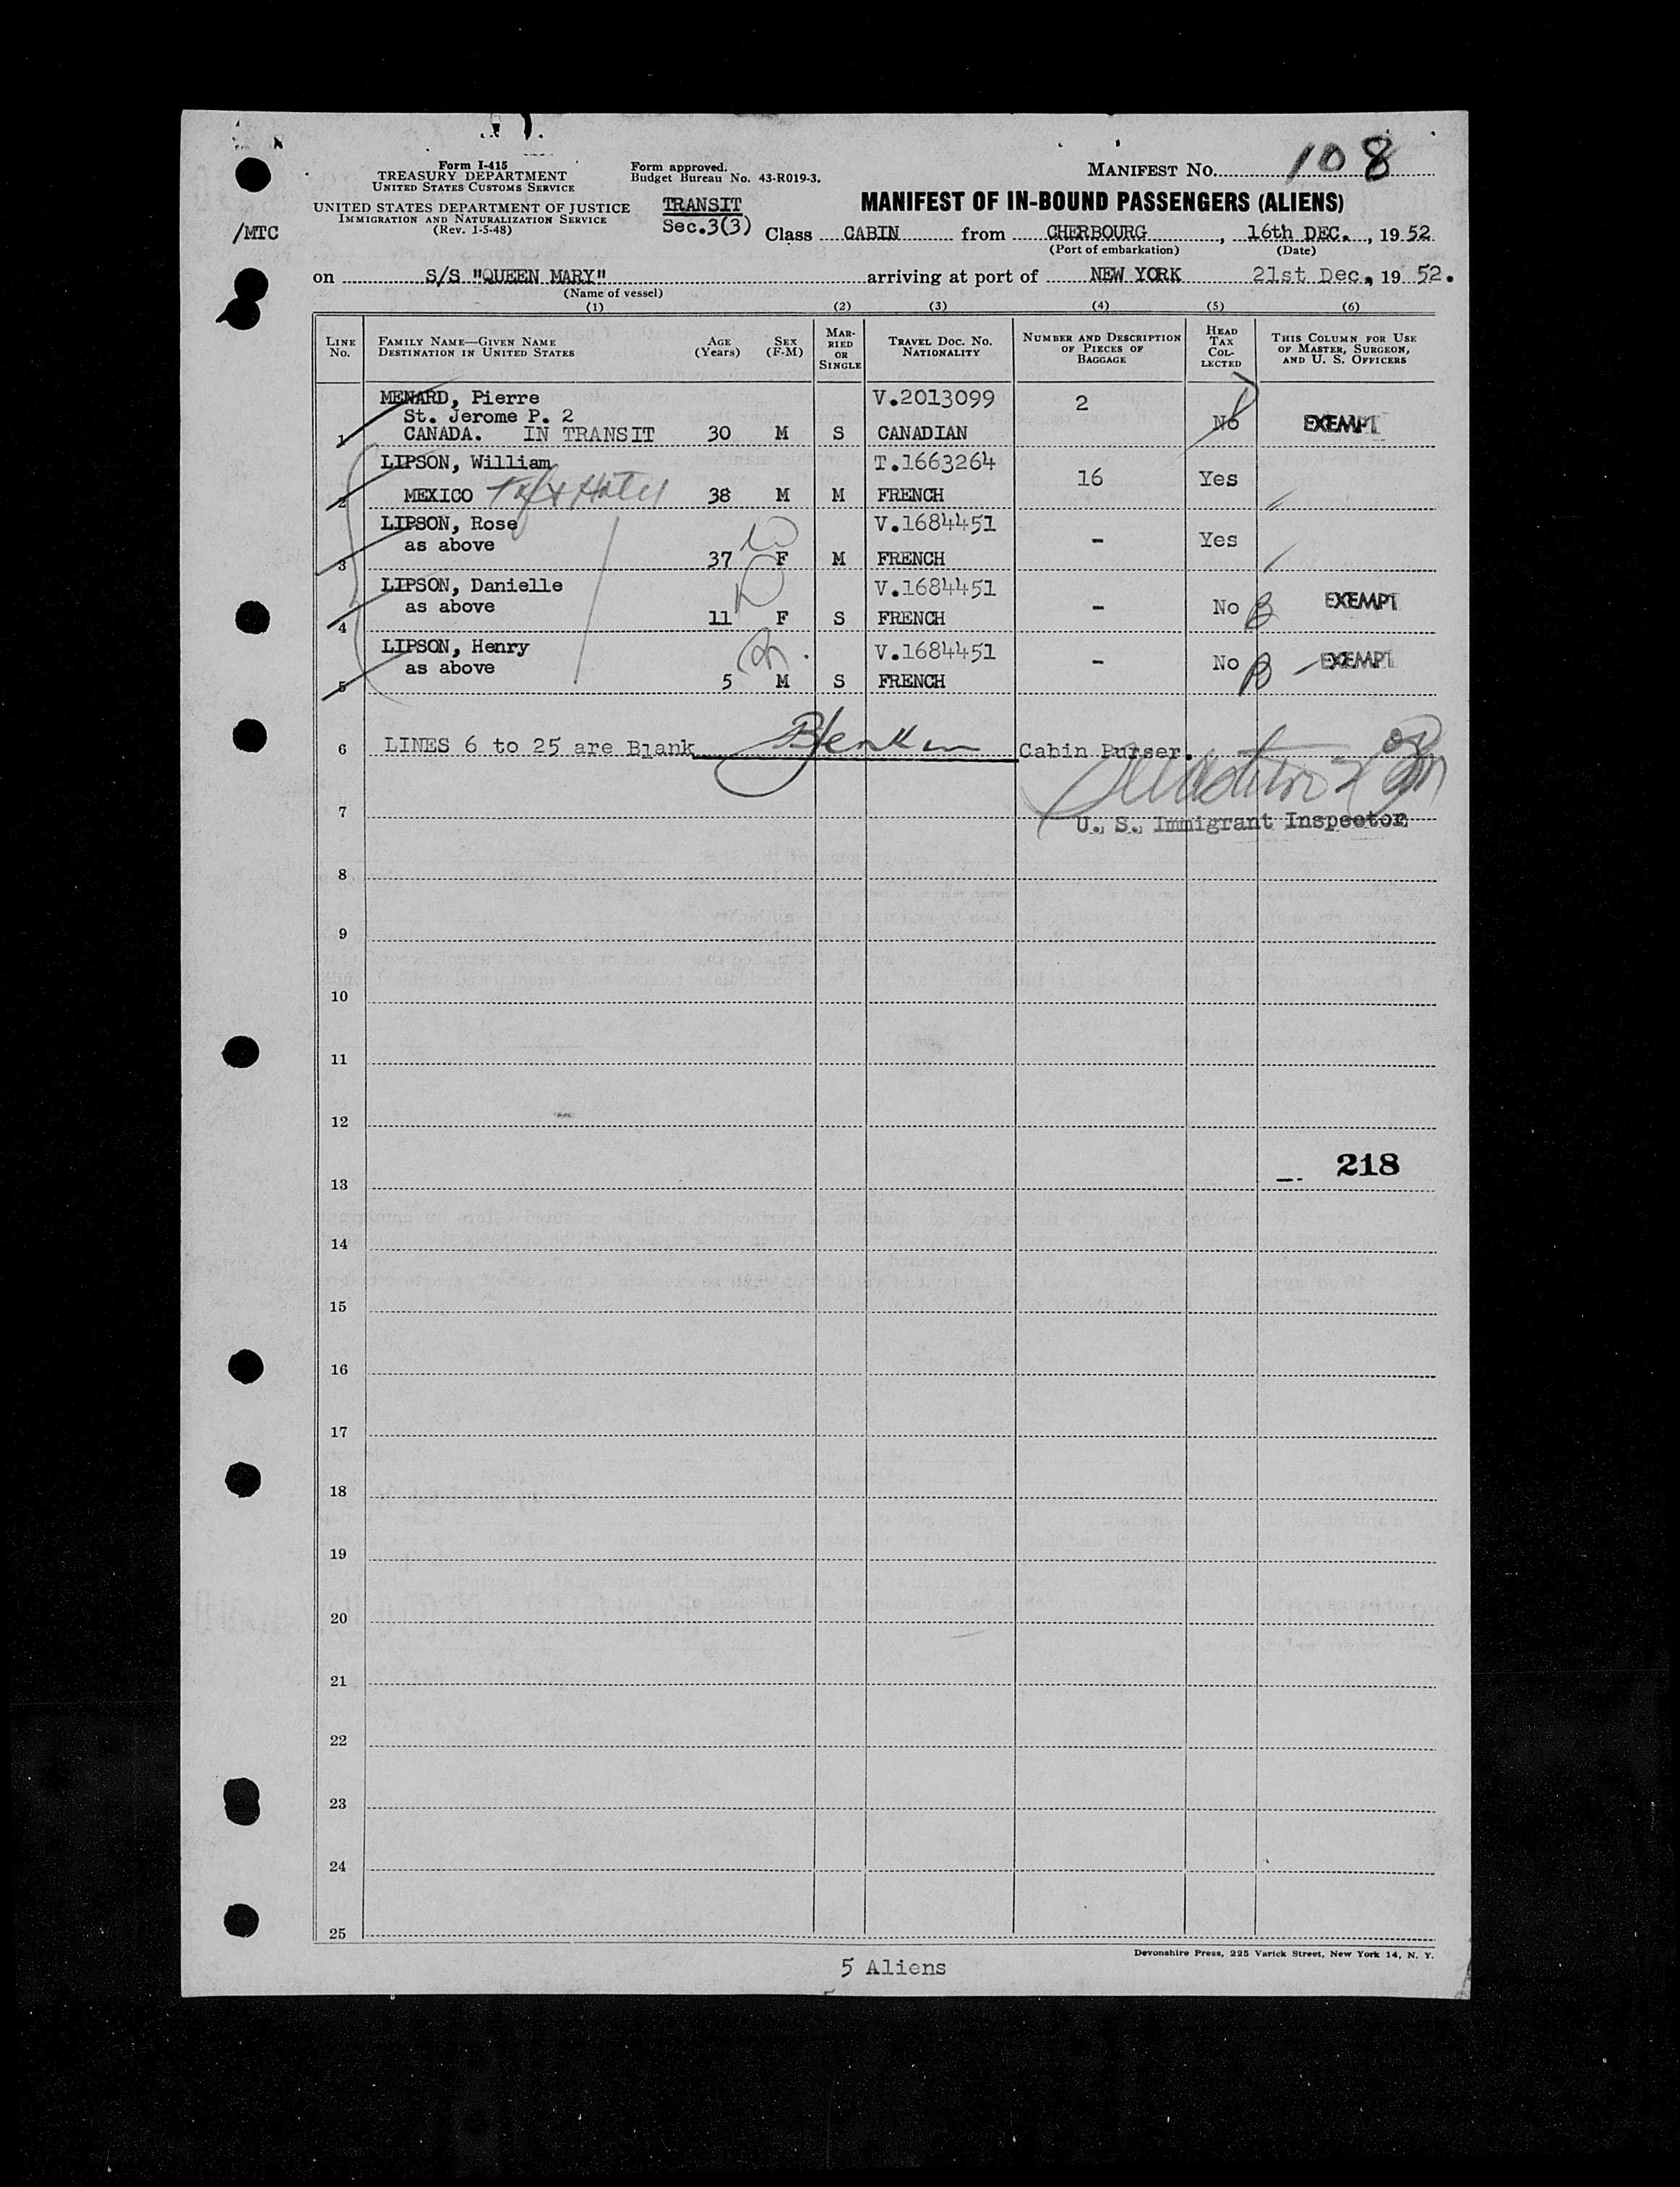 Form I-415
TREASURY DEPARTMENT
UNITED STATES CUSTOMS SERVICE
UNITED STATES DEPARTMENT OF JUSTICE
IMMIGRATION AND NATURALIZATION SERVICE
(Rev. 1-5-48)
/MTC
Form approved.
Budget Bureau No. 43-R019-3.
TRANSIT
Sec.3(3)
MANIFEST NO. 108
MANIFEST OF IN-BOUND PASSENGERS (ALIENS)
Class CABIN from CHERBOURG, 16th DEC., 1952
(Port of embarkation) (Date)
on S/S "QUEEN MARY" arriving at port of NEW YORK 21st Dec, 1952.
(Name of vessel)
(1) (2) (3) (4) (5) (6)
LINE NO. FAMILY NAME—GIVEN NAME DESTINATION IN UNITED STATES AGE (Years) SEX (F-M) MARRIED OR SINGLE TRAVEL DOC. NO. NATIONALITY NUMBER AND DESCRIPTION OF PIECES OF BAGGAGE HEAD TAX COLLECTED THIS COLUMN FOR USE OF MASTER, SURGEON, AND U. S. OFFICERS
MENARD, Pierre V.2013099 2
St. Jerome P. 2 No EXEMPT
1 CANADA. IN TRANSIT 30 M S CANADIAN
LIPSON, William T.1663264 16 Yes
2 MEXICO Taft Hotel 38 M M FRENCH
LIPSON, Rose V.1684451
as above - Yes
3 37 F M FRENCH
LIPSON, Danielle V.1684451
as above - No B EXEMPT
4 11 F S FRENCH
LIPSON, Henry V.1684451
as above - No B EXEMPT
5 5 M S FRENCH
6 LINES 6 to 25 are Blank Cabin Purser.
7 U. S. Immigrant Inspector
8
9
10
11
12
218
13
14
15
16
17
18
19
20
21
22
23
24
25
Devonshire Press, 225 Varick Street, New York 14, N. Y.
5 Aliens